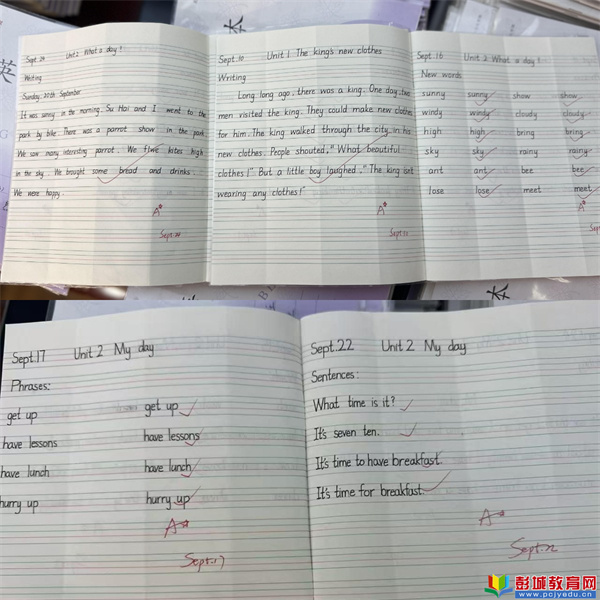 Sept. 24 Unit 2 What a day!
Writing
Sunday, 20th September
It was sunny in the morning. Su Hai and I went to the
park by bike. There was a parrot show in the park
We saw many interesting parrot. We flwe kites high
in the sky. We brought some bread and drinks.
We were happy.
A*
Sept. 24
Sept. 10 Unit 1 The king's new clothes
Writing
Long long ago, there was a king. One day, two
men visited the king. They could make new clothes
for him. The king walked through the city in his
new clothes. People shouted, "What beautiful
clothes!" But a little boy laughed, "The king isn't
wearing any clothes!"
A*
Sept. 11
Sept. 16 Unit 2 What a day!
New words
sunny sunny show show
windy windy cloudy cloudy
high high bring bring
sky sky rainy rainy
ant ant bee bee
lose lose meet meet
A*
Sept.17 Unit 2 My day
Phrases:
get up get up
have lessons have lessons
have lunch have lunch
hurry up hurry up
A*
Sept.17
Sept.22 Unit 2 My day
Sentences:
What time is it?
It's seven ten.
It's time to have breakfast.
It's time for breakfast.
A*
Sept.22
英
彭城教育网
www.pcjyedu.cn